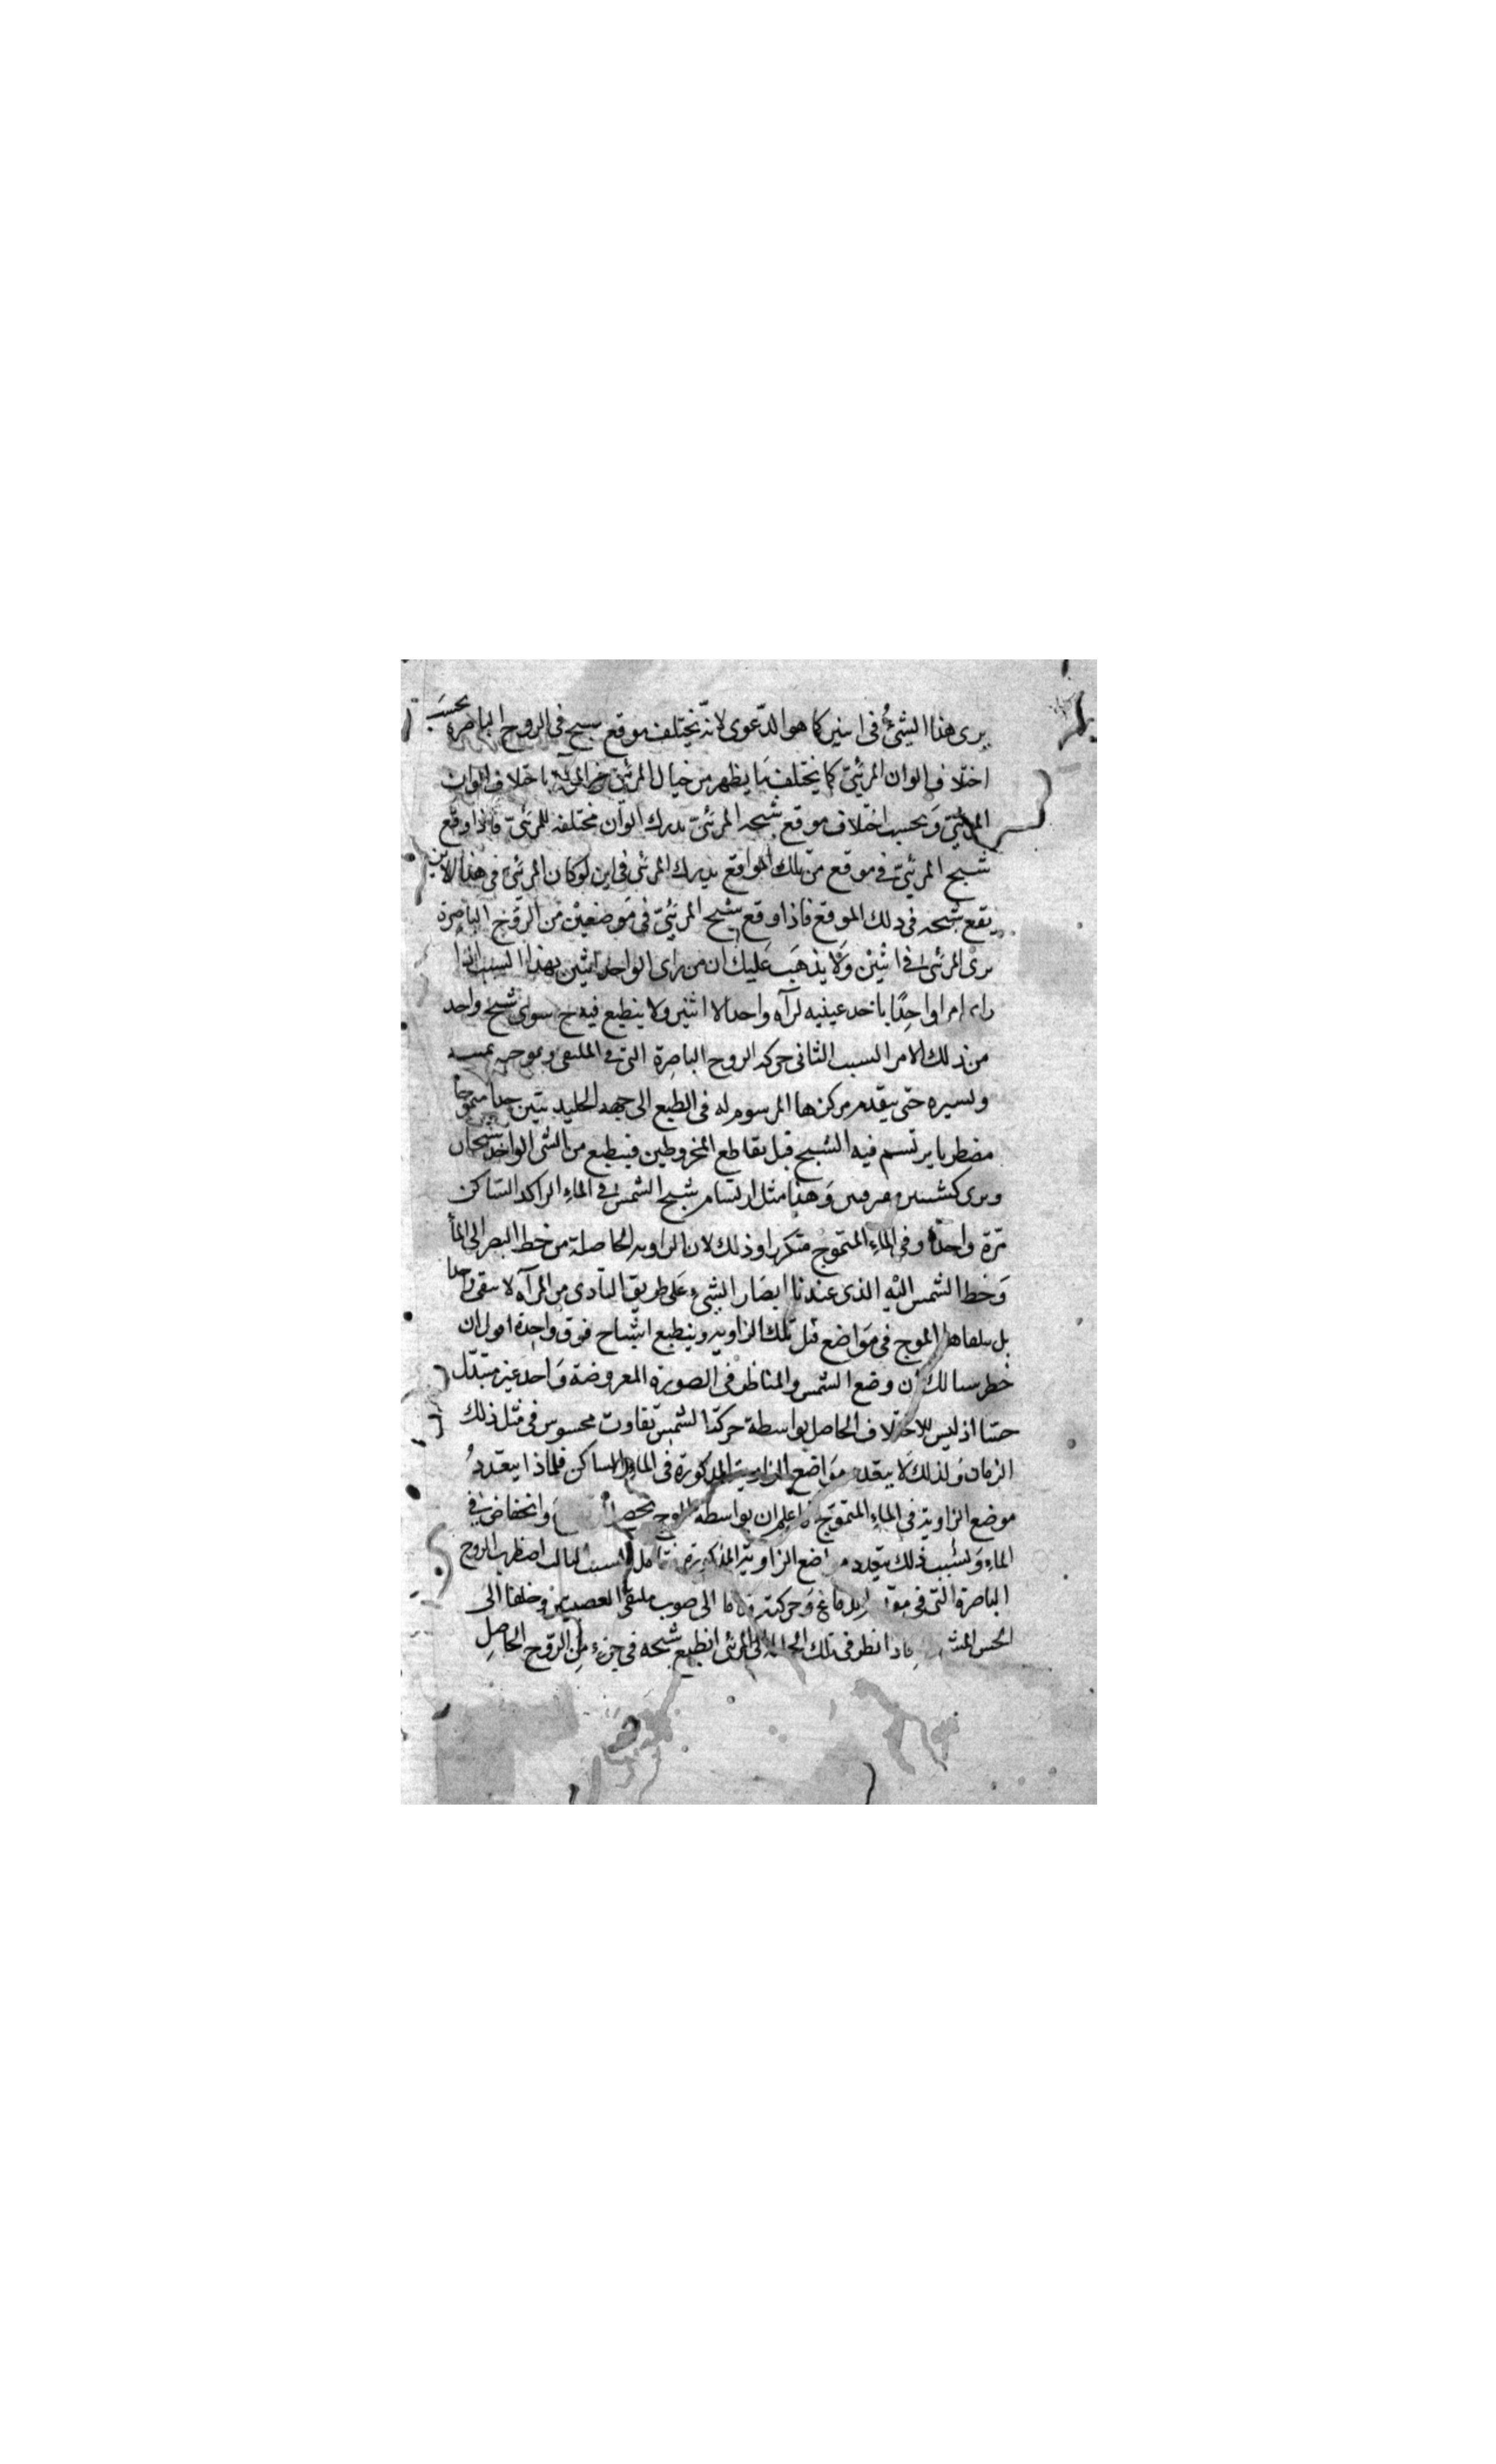 يرى هذا الشئ فى اينين كما هو الدّعوى لانّه يختلف موقع شبح فى الروح الباصرة بحسب
اختلاف الوان المرئىّ كما يختلف ما يظهر من خيال المرئىّ باختلاف الوان
المرئىّ وبحسب اختلاف موقع شبحه المرئىّ يدرك الوان مختلفه للمرئىّ فاذا وقع
شبح المرئىّ فى موقع من تلك المواقع يدرك المرئى فى اين لو كان المرئىّ فى هذا الاين
يقع شبحه فى ذلك الموقع فاذا وقع شبح المرئىّ فى موضعين من الروح الباصرة
يرى المرئى فى اثنين ولا يذهب عليك ان من راى الواحد اثنين بهذا السبب اذا
راى امرا واحدًا باحد عينيه لرآه واحدا لا اثنين ولا ينطبع فيه ح سوى شبح واحد
من ذلك الامر السبب الثانى حركه الروح الباصرة التى فى الملتقى وتموجه يمنه
ويسره حتى يتقدم مركزها المرسوم له فى الطبع الى جهه الجليديتين جدا متموجا
مضطربا يرتسم فيه الشبح قبل تقاطع المخروطين فينطبع من الشى الواحد شبحان
ويرى كشيئين مفرقين وهذا مثل ارتسام شبح الشمس فى الماء الراكد الساكن
مرّة واحدة وفى الماء المتموج متكررا وذلك لان الزاويه الحاصلة من خط البصر الى الماء
وخط الشمس اليه الذى عندنا ابصار الشئ على طريق التادى من المرآه لا يبقى واحدا
بل يتلقاها الموج فى مواضع قبل تلك الزاويه وينطبع اشباح فوق واحدة اقول ان
خطر ببالك ان وضع الشمس والمناظر فى الصورة المعروضة واحد غير متبدّل
حسّا اذ ليس للاختلاف الحاصل بواسطة حركة الشمس تفاوت محسوس فى مثل ذلك
الزمان ولذلك لا يتعدد مواضع الزاوية المذكورة فى الماء الساكن فلماذا يتعدد
موضع الزاوية فى الماء المتموّج فاعلم ان بواسطه الموج يحصل وانخفاض فى
الماء وبسبب ذلك يتعدد مواضع الزاوية المذكورة فتامل السبب الثالث اضطراب الروح
الباصرة التى فى مقدم الدماغ وحركته قداما الى صوب ملتقى العصبتين وخلفا الى
الحس المشترك فاذا نظر فى تلك الحالة الى المرئى انطبع شبحه فى جزء من الروح الحاصل